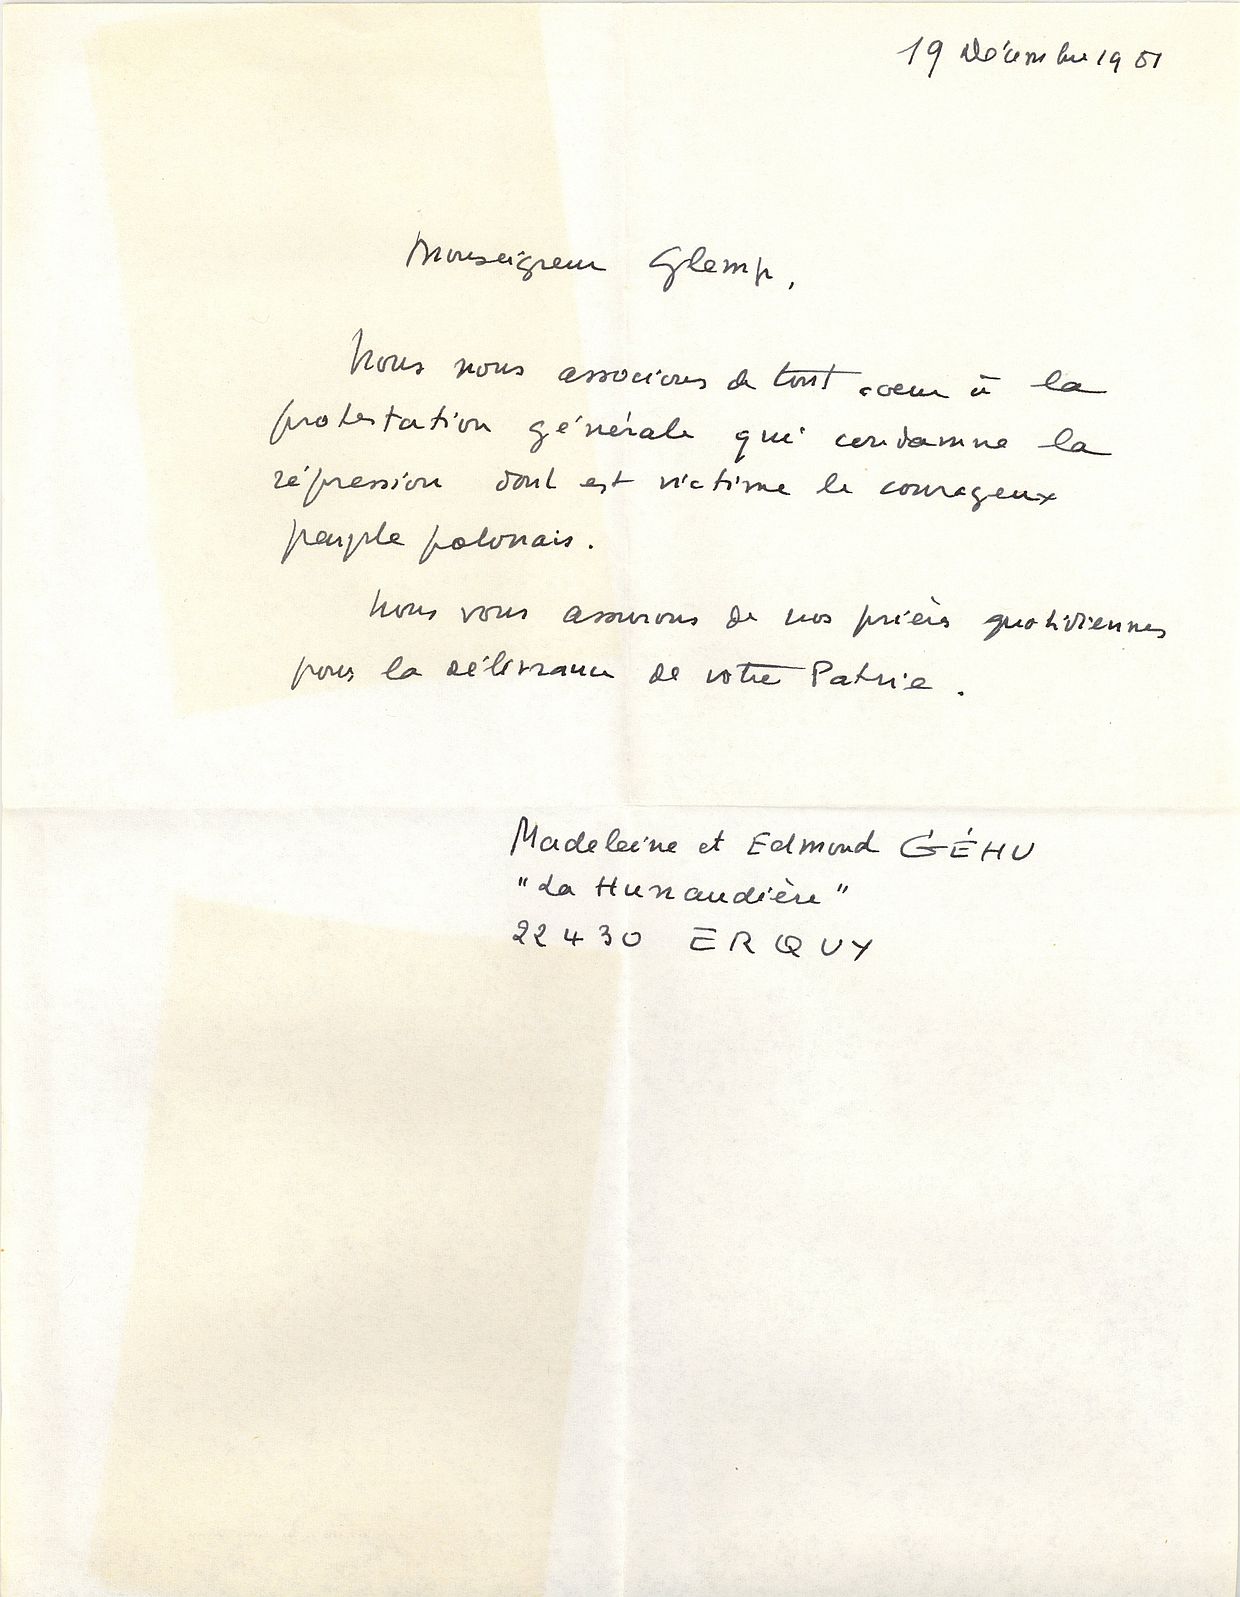 19 Décembre 1981
Monseigneur Glemp,
Nous nous associons de tout coeur à la
protestation générale qui condamne la
répression dont est victime le courageux
peuple polonais.
Nous vous assurons de nos prières quotidiennes
pour la délivrance de votre Patrie.
Madeleine et Edmond GÉHU
"La Hunaudière"
22430 ERQUY